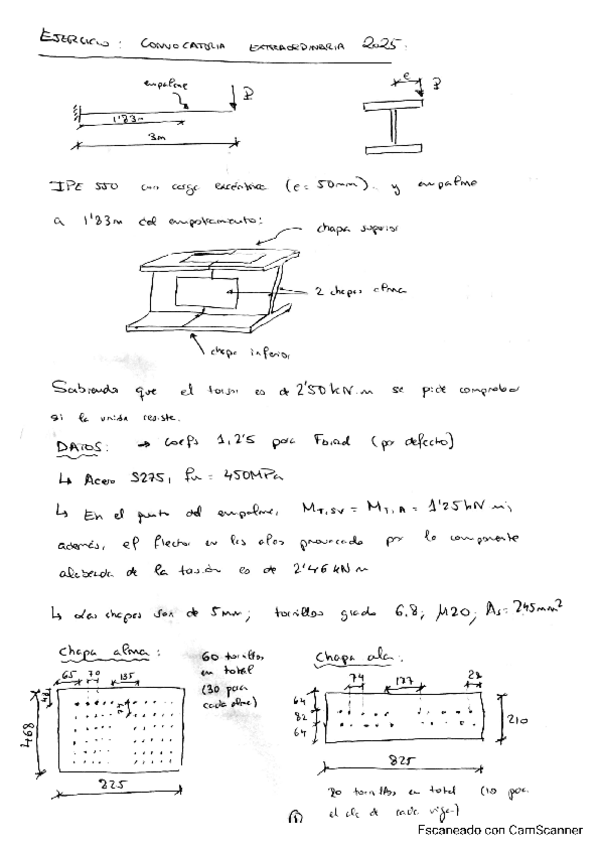 EJERCICIO: CONVOCATORIA EXTRAORDINARIA 2025.
empalme
P
1'83m
3m
e
P
IPE 550 con carga excéntrica (e = 50mm) y empalme
a 1'83m del empotramiento:
chapa superior
2 chapas alma
chapa inferior
Sabiendo que el torsor es de 2'50 kN·m se pide comprobar
si la unión resiste.
DATOS: → coefs 1, 2'5 para Fbrad (por defecto)
↳ Acero S275, fu = 450MPa
↳ En el punto del empalme, MT,SV = MT,A = 1'25kN m;
además, el flector en las alas provocado por la componente
alabeada de la torsión es de 2'46 kN m
↳ Las chapas son de 5mm; tornillos grado 6.8; M20; As = 245mm²
Chapa alma:
60 tornillos
en total
(30 para
cada alma)
65 70 135
468
825
Chapa ala:
74 177 28
64
82
64
210
825
20 tornillos en total (10 para
el ala de cada viga)
①
Escaneado con CamScanner